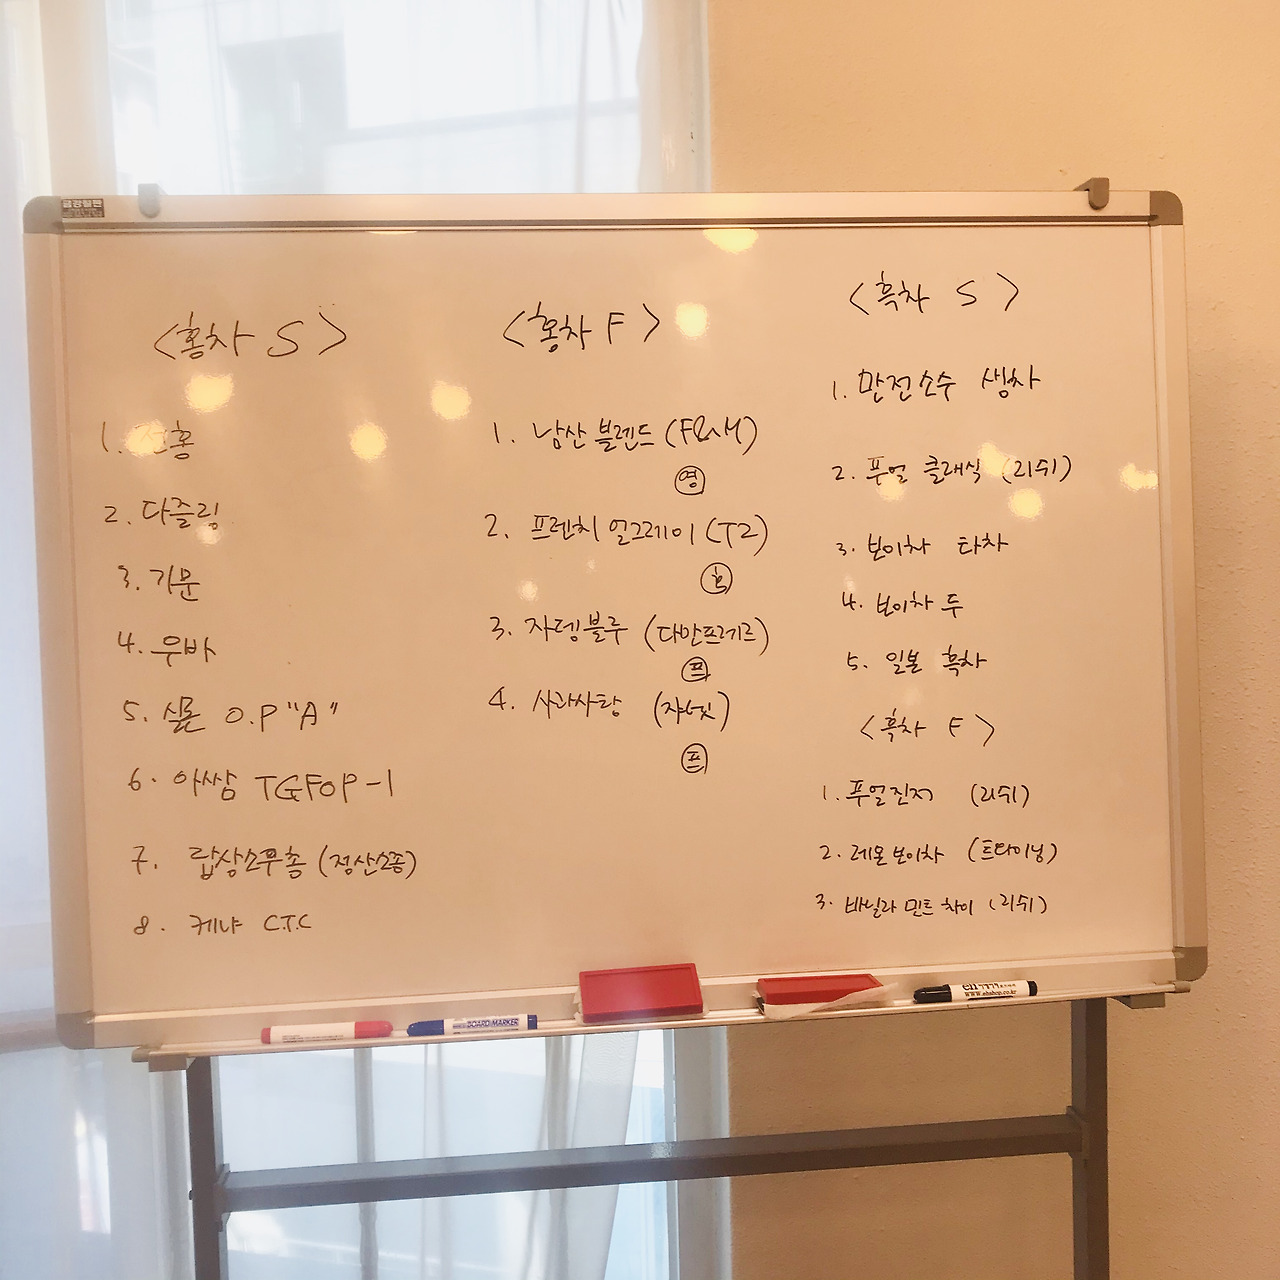 금강칠판
<홍차 S>
1. 전홍
2. 다즐링
3. 기문
4. 우바
5. 실론 O.P "A"
6. 아쌈 TGFOP-1
7. 랍상소우총 (정산소종)
8. 케냐 C.T.C
<홍차 F>
1. 남산 블렌드 (F&M)
영
2. 프렌치 얼그레이 (T2)
호
3. 자뎅블루 (다만프레르)
프
4. 사과사랑 (쟈넷)
프
<흑차 S>
1. 만전소수 생차
2. 푸얼 클래식 (리쉬)
3. 보이차 타차
4. 보이차 두
5. 일본 흑차
<흑차 F>
1. 푸얼진저 (리쉬)
2. 레몬 보이차 (트와이닝)
3. 바닐라 민트 차이 (리쉬)
BOARD MARKER
www.ehshop.co.kr